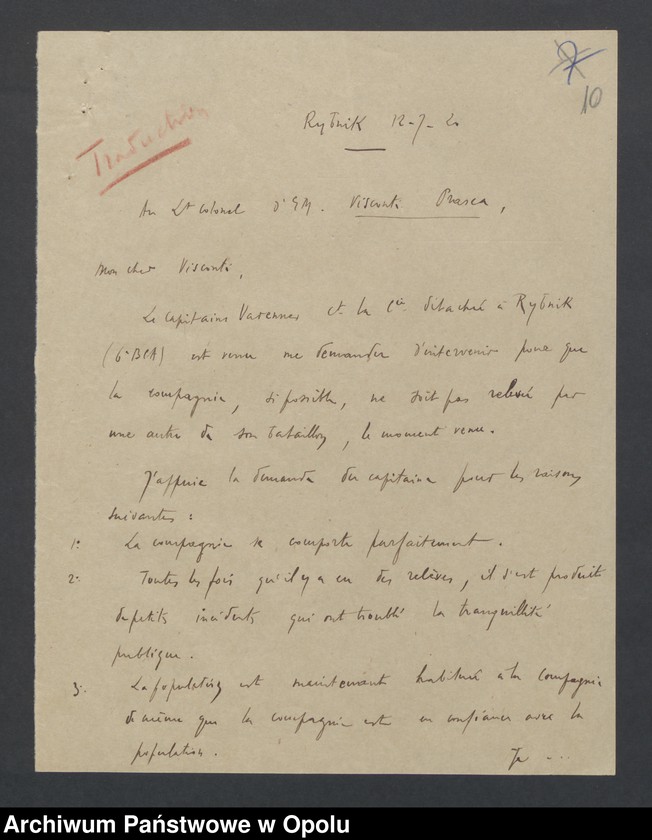 7
10
Traduction
Rybnik 12-7-20
Au Lt Colonel d'EM. Visconti Prasca,
Mon cher Visconti,
Le capitaine Varennes et la Cie détaché à Rybnik
(6e BCA) est venu me demander d'intervenir pour que
la compagnie, si possible, ne soit pas relevée par
une autre de son bataillon, le moment venu.
J'appuie la demande du capitaine pour les raisons
suivantes :
1° La compagnie se comporte parfaitement.
2° Toutes les fois qu'il y a eu des relèves, il s'est produit
de petits incidents qui ont troublé la tranquillité
publique.
3° La population est maintenant habitué à la compagnie
de même que la compagnie est en confiance avec la
population.
Je ...
Archiwum Państwowe w Opolu